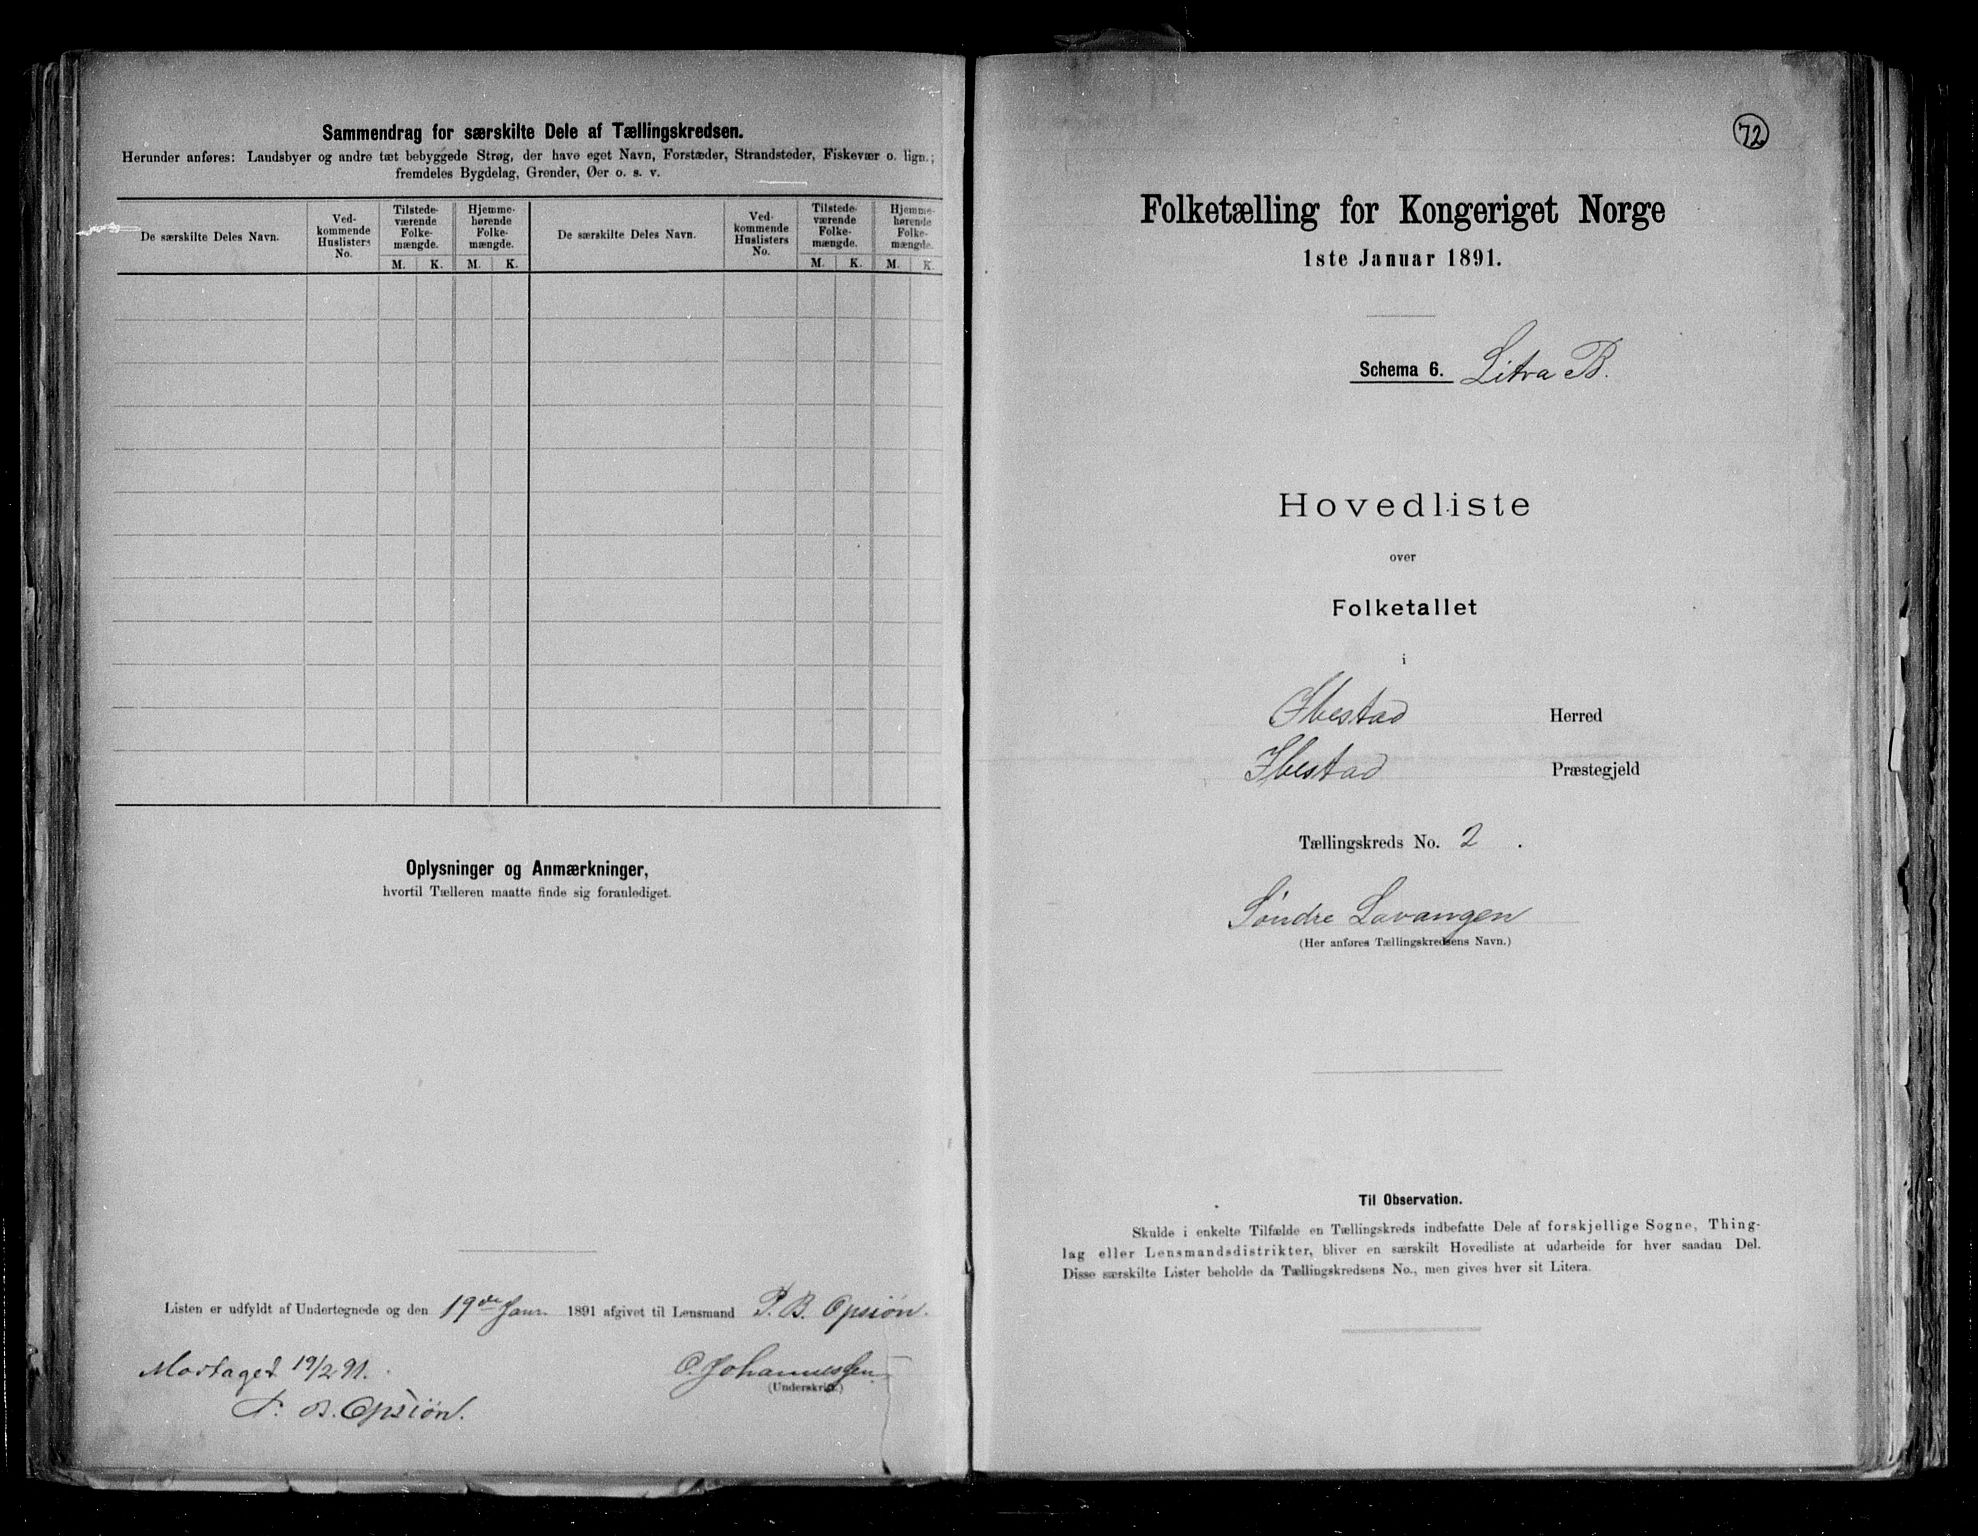 Sammendrag for særskilte Dele af Tællingskredsen.
Herunder anføres: Landsbyer og andre tæt bebyggede Strøg, der have eget Navn, Forstæder, Strandsteder, Fiskevær o. lign.;
fremdeles Bygdelag, Grender, Øer o. s. v.
De særskilte Deles Navn.
Ved-
kommende
Huslisters
No.
Tilstede-
værende
Folke-
mængde.
Hjemme-
hørende
Folke-
mængde.
De særskilte Deles Navn.
Ved-
kommende
Huslisters
No.
Tilstede-
værende
Folke-
mængde.
Hjemme-
hørende
Folke-
mængde.
M. K. M. K. M. K. M. K.
Oplysninger og Anmærkninger,
hvortil Tælleren maatte finde sig foranlediget.
Listen er udfyldt af Undertegnede og den 19de Janr. 1891 afgivet til Lensmand P. B. Opsiøn.
C. Johannessen
(Underskrift.)
Modtaget 19/2 91.
P. B. Opsiøn.
72
Folketælling for Kongeriget Norge
1ste Januar 1891.
Schema 6. Litra B.
Hovedliste
over
Folketallet
i
Ibestad Herred
Ibestad Præstegjeld
Tællingskreds No. 2.
Søndre Lavangen
(Her anføres Tællingskredsens Navn.)
Til Observation.
Skulde i enkelte Tilfælde en Tællingskreds indbefatte Dele af forskjellige Sogne, Thing-
lag eller Lensmandsdistrikter, bliver en særskilt Hovedliste at udarbeide for hver saadan Del.
Disse særskilte Lister beholde da Tællingskredsens No., men gives hver sit Litera.